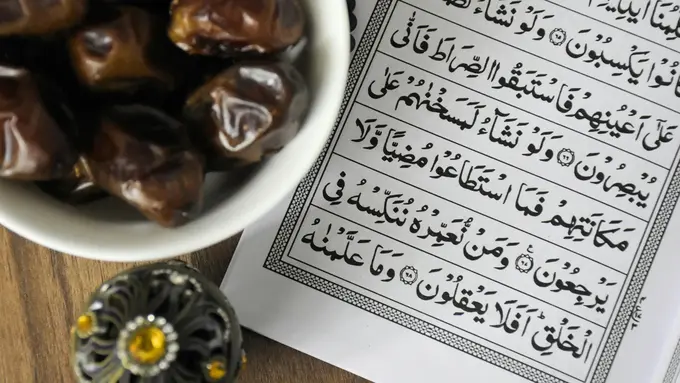 كَانُوْا يَكْسِبُوْنَ ﴿٦٥﴾ وَلَوْ نَشَآءُ
عَلٰٓى اَعْيُنِهِمْ فَاسْتَبَقُوا الصِّرَاطَ فَاَنّٰى
يُبْصِرُوْنَ ﴿٦٦﴾ وَلَوْ نَشَآءُ لَمَسَخْنٰهُمْ عَلٰى
مَكَانَتِهِمْ فَمَا اسْتَطَاعُوْا مُضِيًّا وَّلَا
يَرْجِعُوْنَ ﴿٦٧﴾ وَمَنْ نُّعَمِّرْهُ نُنَكِّسْهُ فِى
الْخَلْقِ ؕ اَفَلَا يَعْقِلُوْنَ ﴿٦٨﴾ وَمَا عَلَّمْنٰهُ